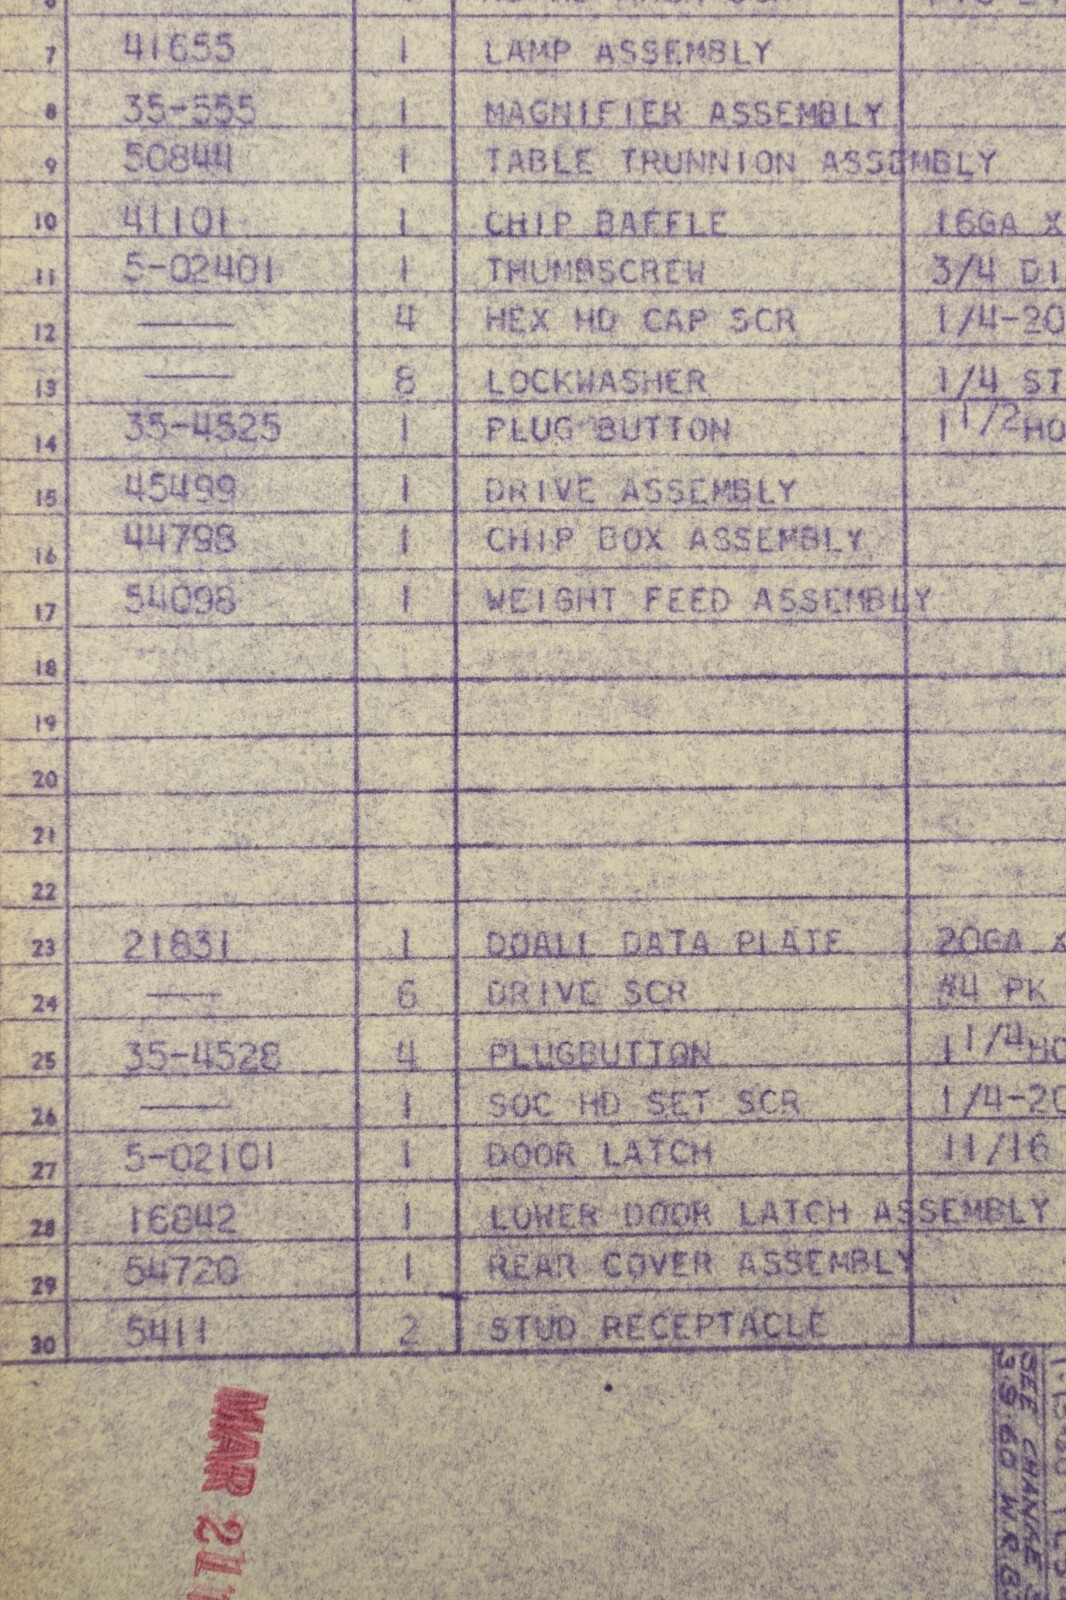 7 41655 1 LAMP ASSEMBLY
8 35-555 1 MAGNIFIER ASSEMBLY
9 50844 1 TABLE TRUNNION ASSEMBLY
10 41101 1 CHIP BAFFLE 16GA X
11 5-02401 1 THUMBSCREW 3/4 DI
12 — 4 HEX HD CAP SCR 1/4-20
13 — 8 LOCKWASHER 1/4 ST
14 35-4525 1 PLUG BUTTON 1 1/2 HO
15 45499 1 DRIVE ASSEMBLY
16 44798 1 CHIP BOX ASSEMBLY
17 54098 1 WEIGHT FEED ASSEMBLY
18
19
20
21
22
23 21831 1 DOALL DATA PLATE 20GA X
24 — 6 DRIVE SCR #4 PK
25 35-4528 4 PLUGBUTTON 1 1/4 HO
26 — 1 SOC HD SET SCR 1/4-20
27 5-02101 1 DOOR LATCH 11/16
28 16842 1 LOWER DOOR LATCH ASSEMBLY
29 54720 1 REAR COVER ASSEMBLY
30 5411 2 STUD RECEPTACLE
MAR 21
SEE CHANGE
3.9.60 W.R.B.